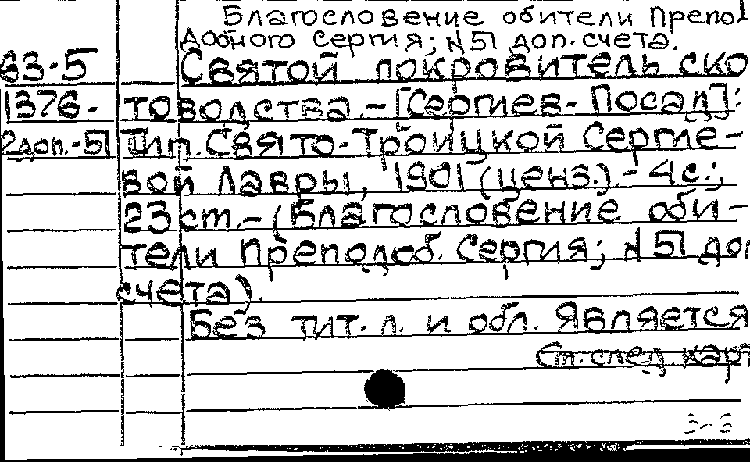 Благословение обители Препо
добного Сергия; №51 доп. счета.
63-5 Святой покровитель ско
1376- товодства. - [Сергиев-Посад]:
2доп.-51 Тип. Свято-Троицкой Сергие-
вой Лавры, 1901 (ценз.). - 4с.;
23 ст. - (Благословение оби-
тели Преподоб. Сергия; №51 доп
счета).
Без тит. л. и обл. Является
См. след карт